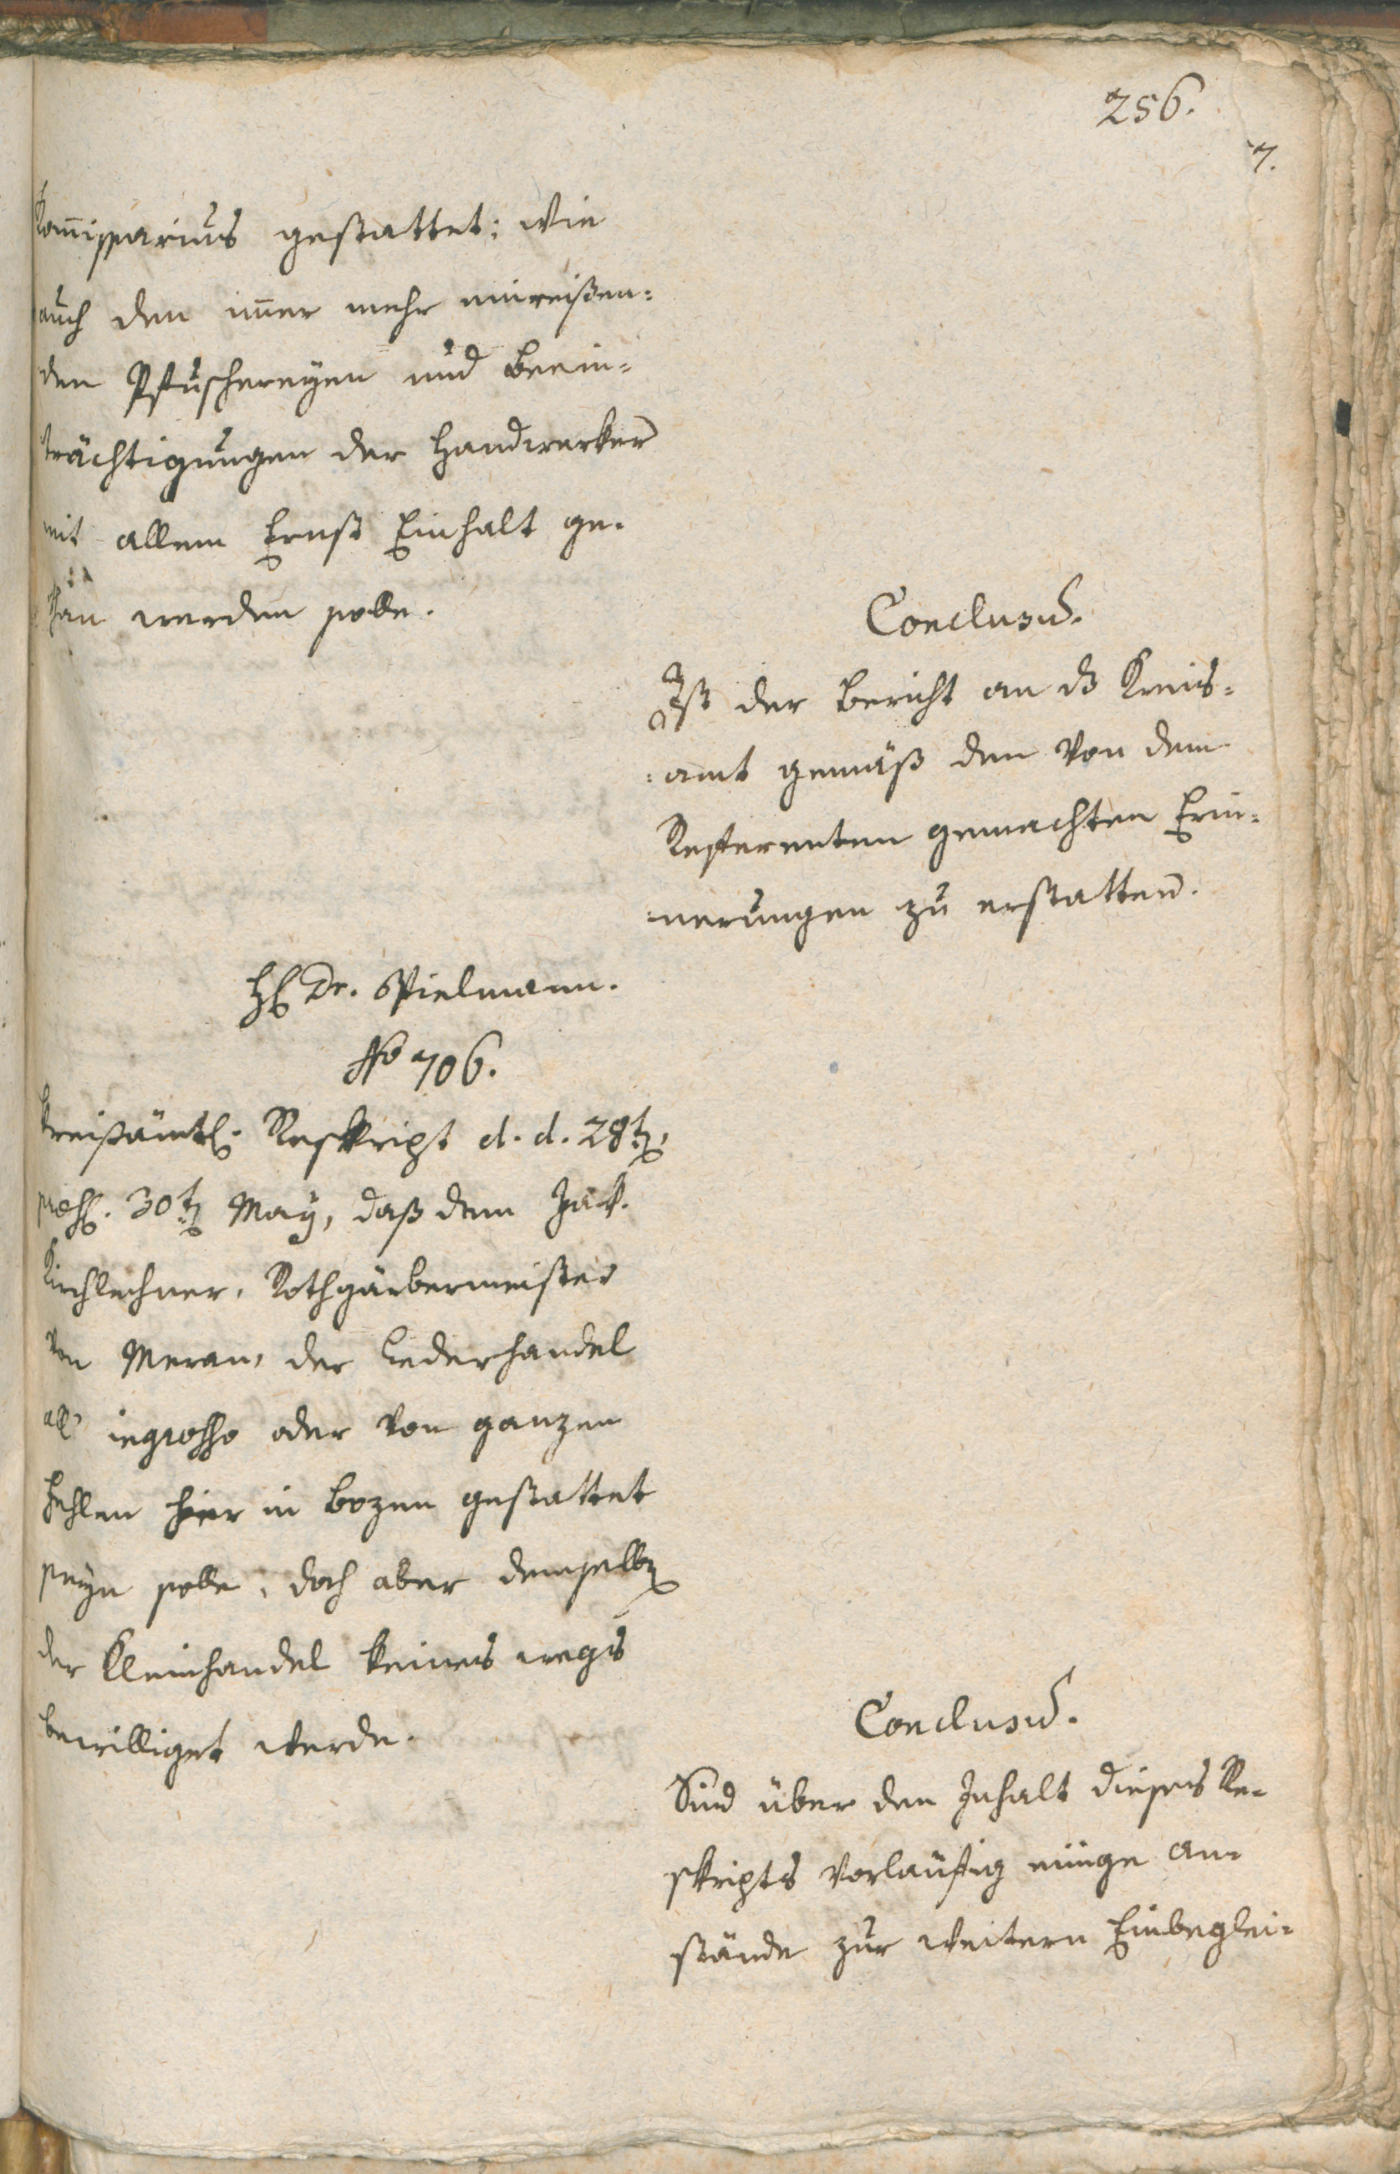 256.
7.
Kom̅issarius gestattet: wie
auch den im̅er mehr einreißen=
den Pfuschereyen und Beein=
trächtigungen der Handwerker
mit allem Ernst Einhalt ge=
than werden solle.
Conclusu̅.
Ist der Bericht an ds Kreis=
=amt gemäß den von dem
Referenten gemachten Erin=
=nerungen zu erstatten.
H. Dr. Spielmann.
No 706.
Kreisämtl. Reskript d. d. 28t.
praes. 30t. May, daß dem Jak.
Kirchlechner, Rothgärbermeister
von Meran, der Lederhandel
all' ingrosso oder von ganzen
Fehlen hier in Bozen gestattet
seyn solle, doch aber demselben
der Kleinhandel keines wegs
bewilliget werde.
Conclusu̅.
Sind über den Inhalt dieses Re=
skripts vorläufig einige An=
stände zur weitern Einbeglei=